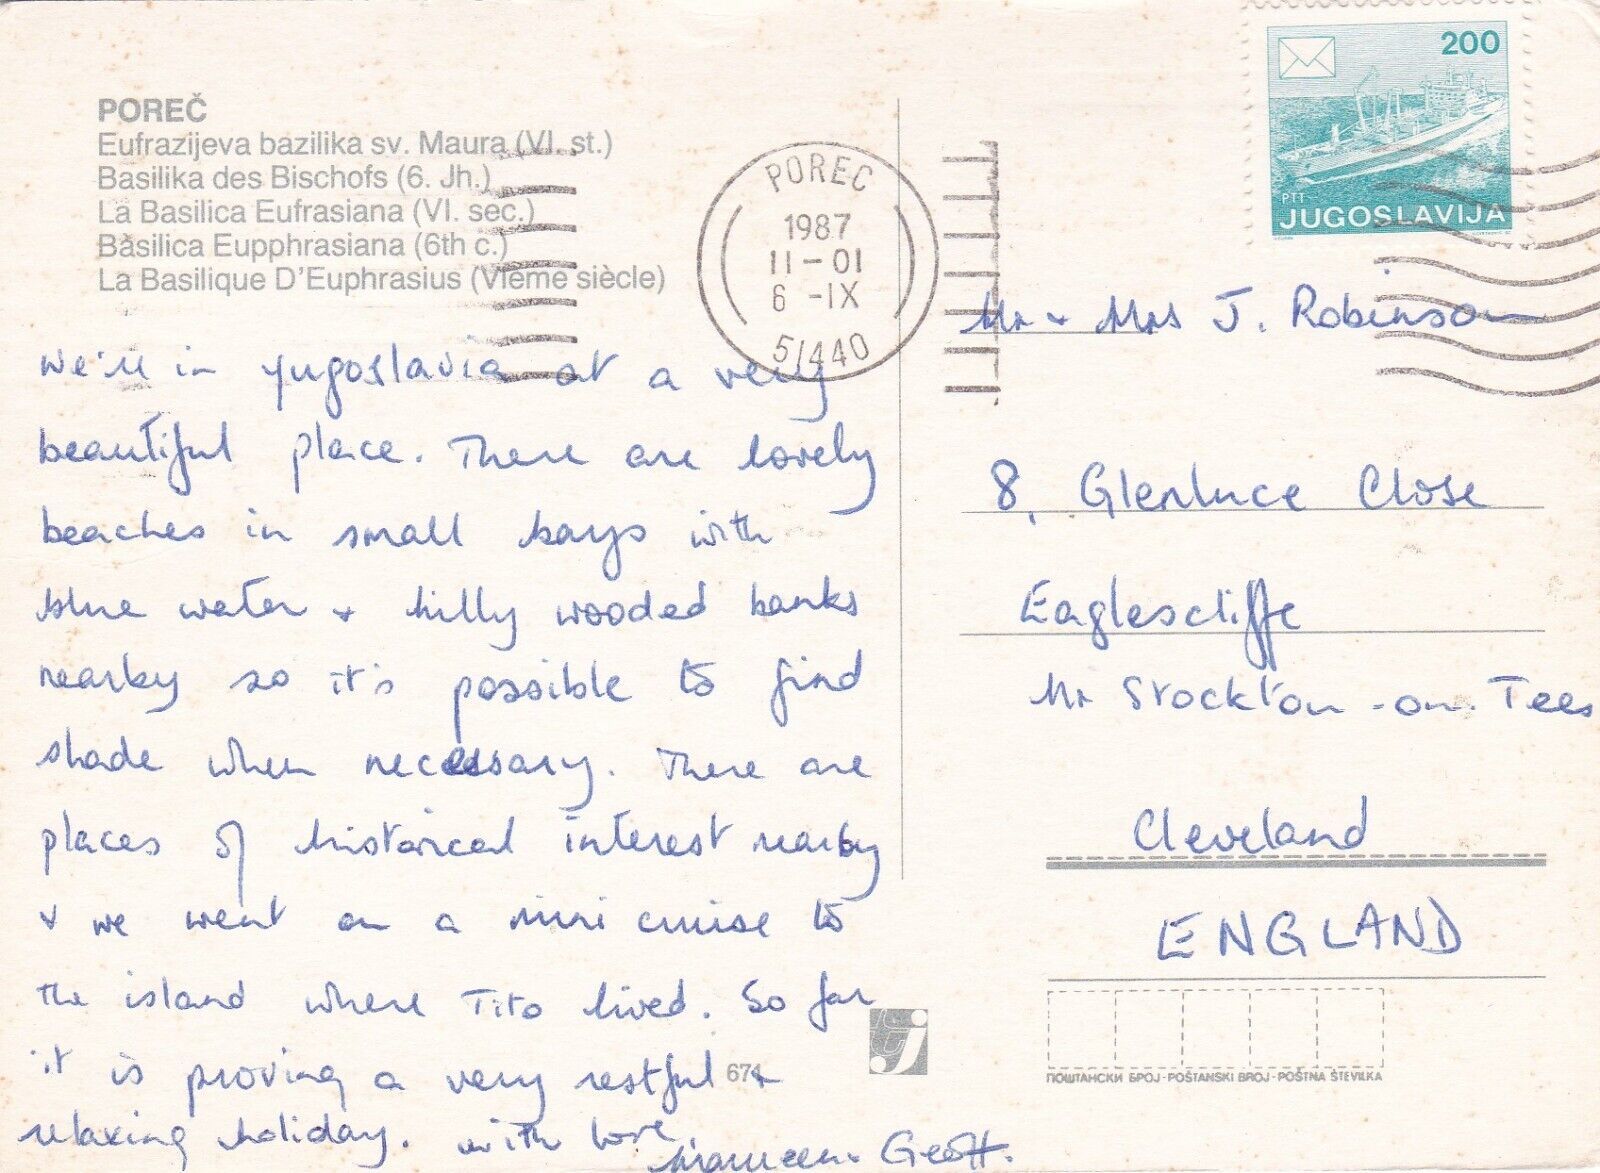 POREČ
Eufrazijeva bazilika sv. Maura (VI. st.)
Basilika des Bischofs (6. Jh.)
La Basilica Eufrasiana (VI. sec.)
Basilica Eupphrasiana (6th c.)
La Basilique D'Euphrasius (VIeme siècle)
We're in Yugoslavia at a very
beautiful place. There are lovely
beaches in small bays with
blue water & hilly wooded banks
nearby so it's possible to find
shade when necessary. There are
places of historical interest nearby
& we went on a mini cruise to
the island where Tito lived. So far
it is proving a very restful &
relaxing holiday. With love,
Maureen & Geoff.
674
POREC
1987
11-01
6-IX
51440
200
PTT
JUGOSLAVIJA
Mr & Mrs J. Robinson
8, Glenluce Close
Eaglescliffe
Nr Stockton-on-Tees
Cleveland
ENGLAND
ПОШТАНСКИ БРОЈ-POŠTANSKI BROJ-POŠTNA ŠTEVILKA